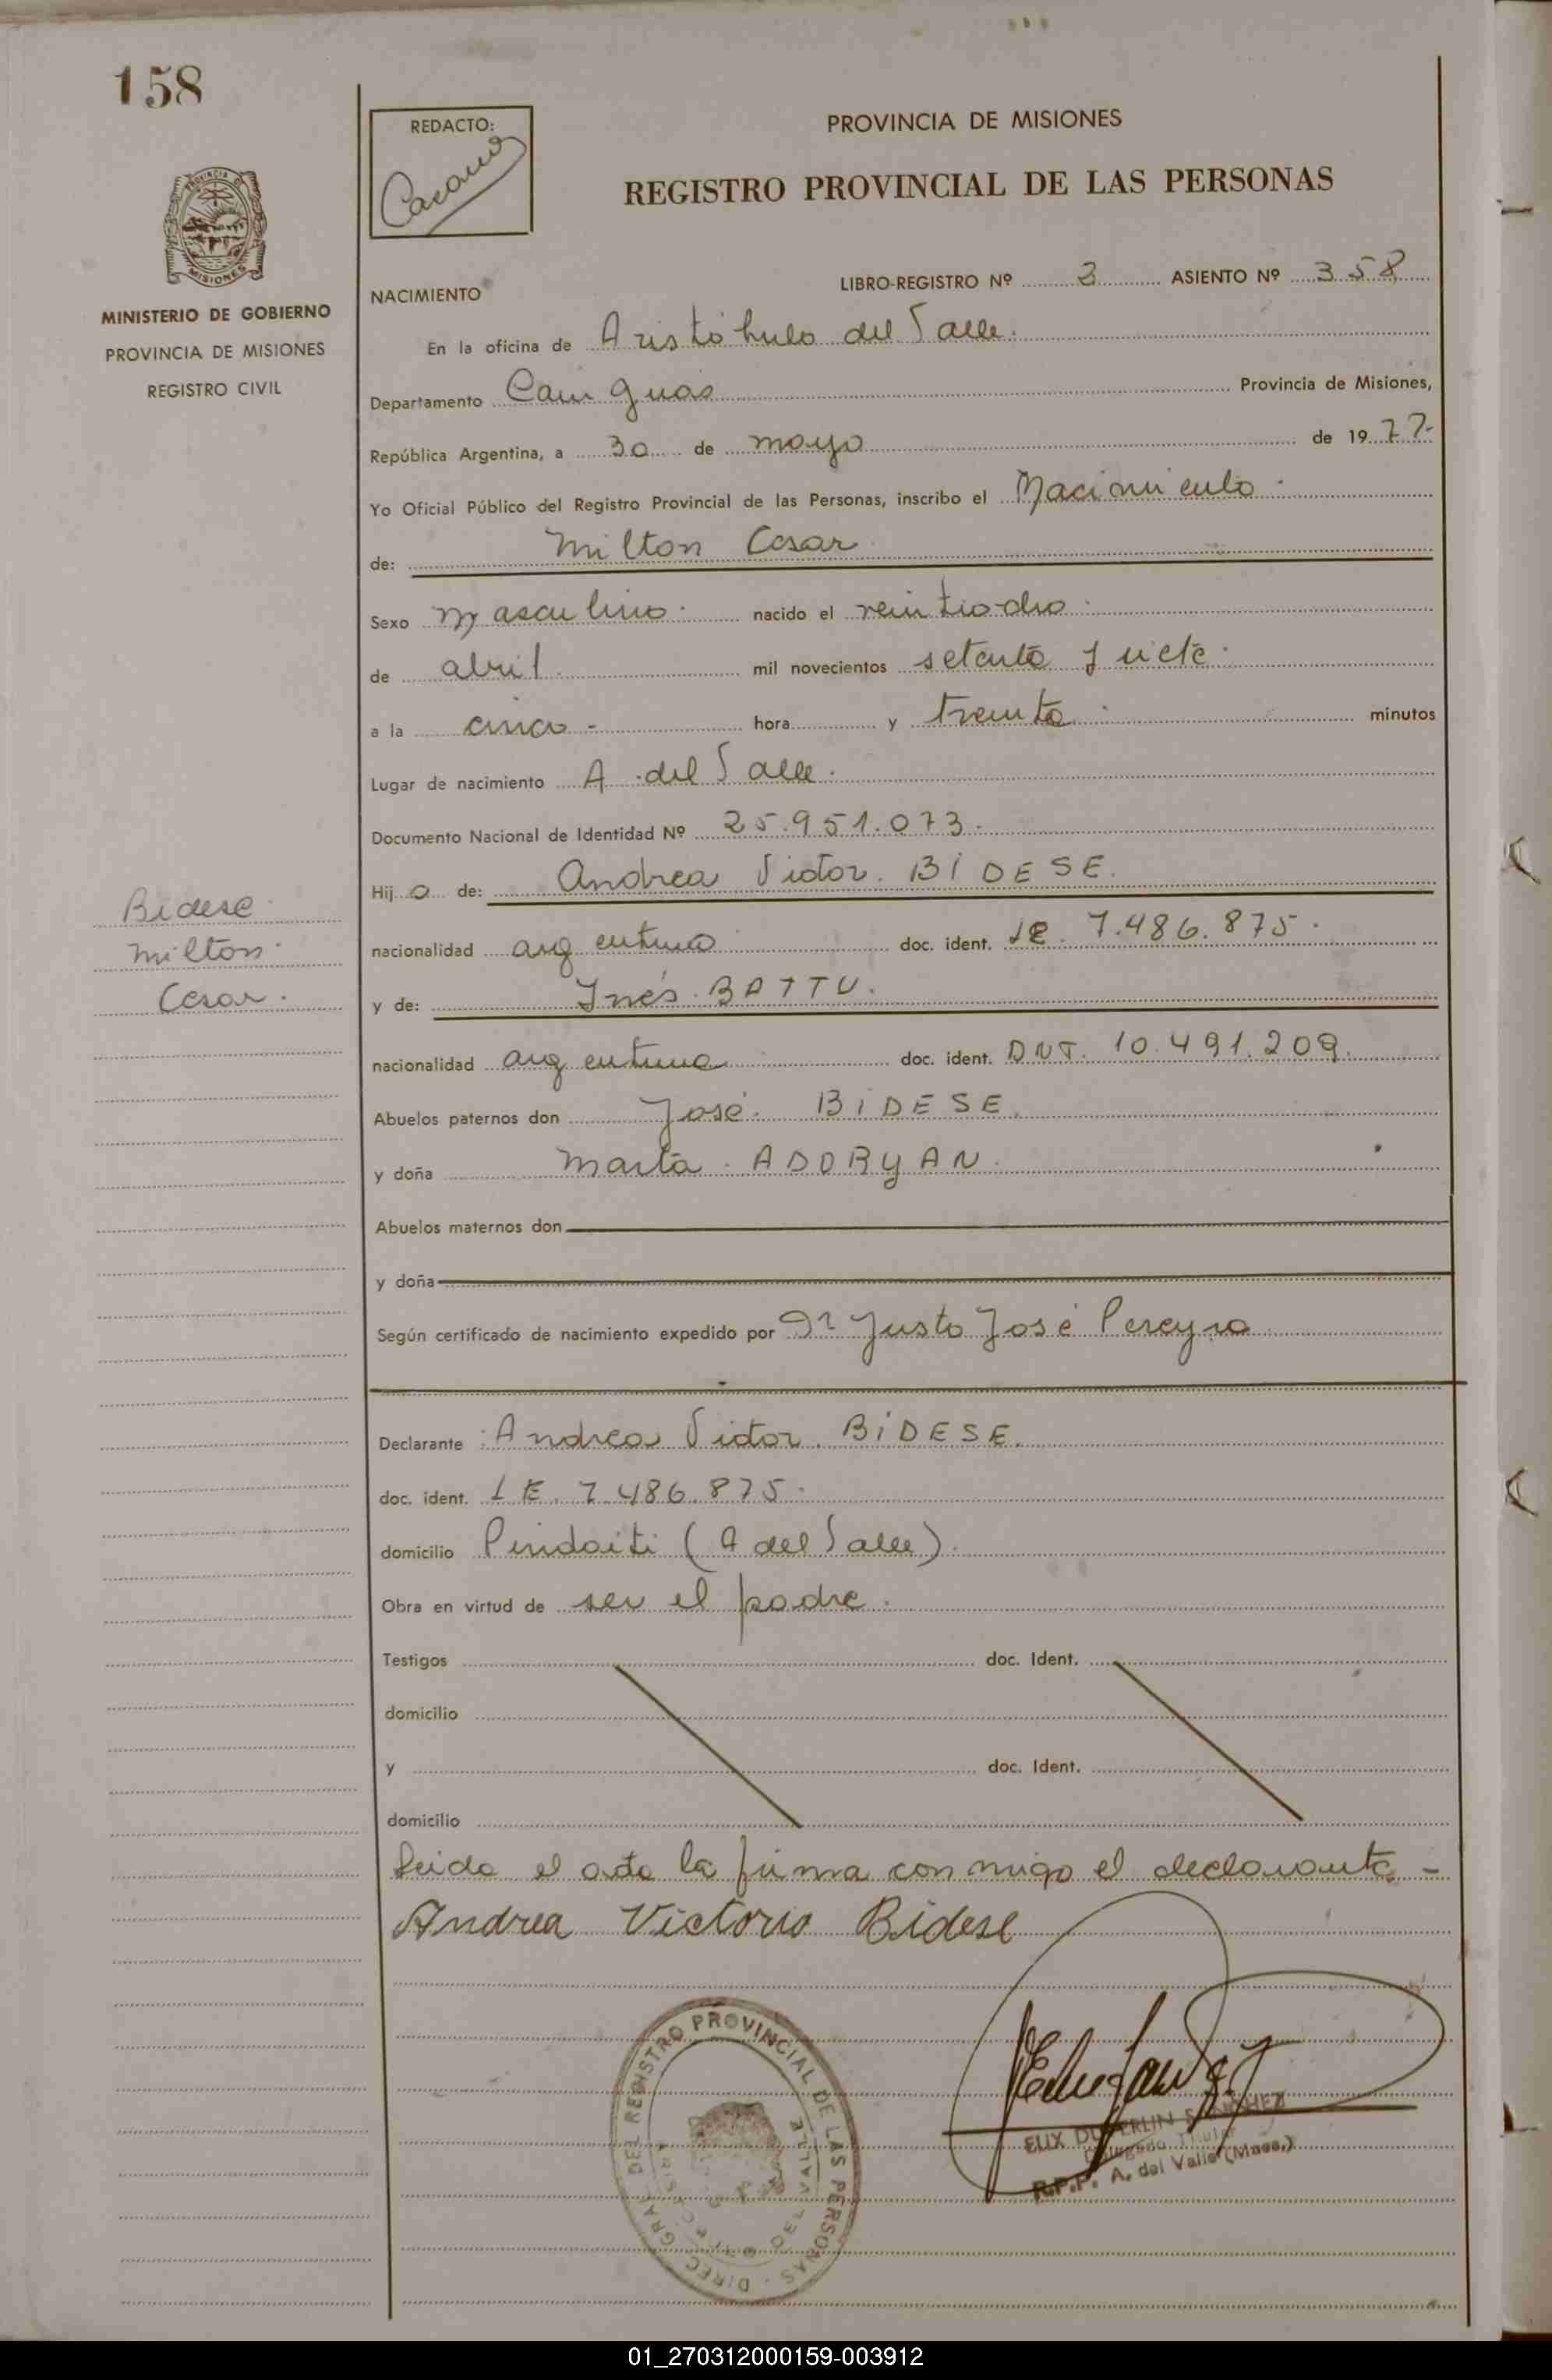 158
REDACTO:
PROVINCIA DE MISIONES
REGISTRO PROVINCIAL DE LAS PERSONAS
MISIONES
MINISTERIO DE GOBIERNO
PROVINCIA DE MISIONES
REGISTRO CIVIL
NACIMIENTO LIBRO-REGISTRO Nº 3 ASIENTO Nº 358
En la oficina de Aristóbulo del Valle.
Departamento Cainguás Provincia de Misiones,
República Argentina, a 30 de mayo de 1977-
Yo Oficial Público del Registro Provincial de las Personas, inscribo el Nacimiento.
de: Milton Cesar
Sexo masculino. nacido el veintiocho.
de abril mil novecientos setenta y siete.
a la cinco - hora y treinta. minutos
Lugar de nacimiento A. del Valle.
Documento Nacional de Identidad Nº 25.951.073.
Hijo de: Andrea Victor. BIDESE.
nacionalidad argentino doc. ident. LE. 7.486.875.
y de: Inés. BATTU.
nacionalidad argentina doc. ident. DNI. 10.491.209.
Abuelos paternos don José. BIDESE.
y doña Marta. ADORYAN.
Abuelos maternos don
y doña
Según certificado de nacimiento expedido por Dr Justo José Pereyra
Bidese.
Milton.
Cesar.
Declarante: Andrea Victor. BIDESE.
doc. ident. LE. 7.486.875.
domicilio Pindaiti (A del Valle).
Obra en virtud de ser el padre.
Testigos doc. Ident.
domicilio
y doc. Ident.
domicilio
Leida el acta la firma conmigo el declarante -
Andrea Victorio Bidese
DIREC. GRAL. DEL REGISTRO PROVINCIAL DE LAS PERSONAS
DEL VALLE
R.P.P. A. del Valle (Mnes.)
01_270312000159-003912